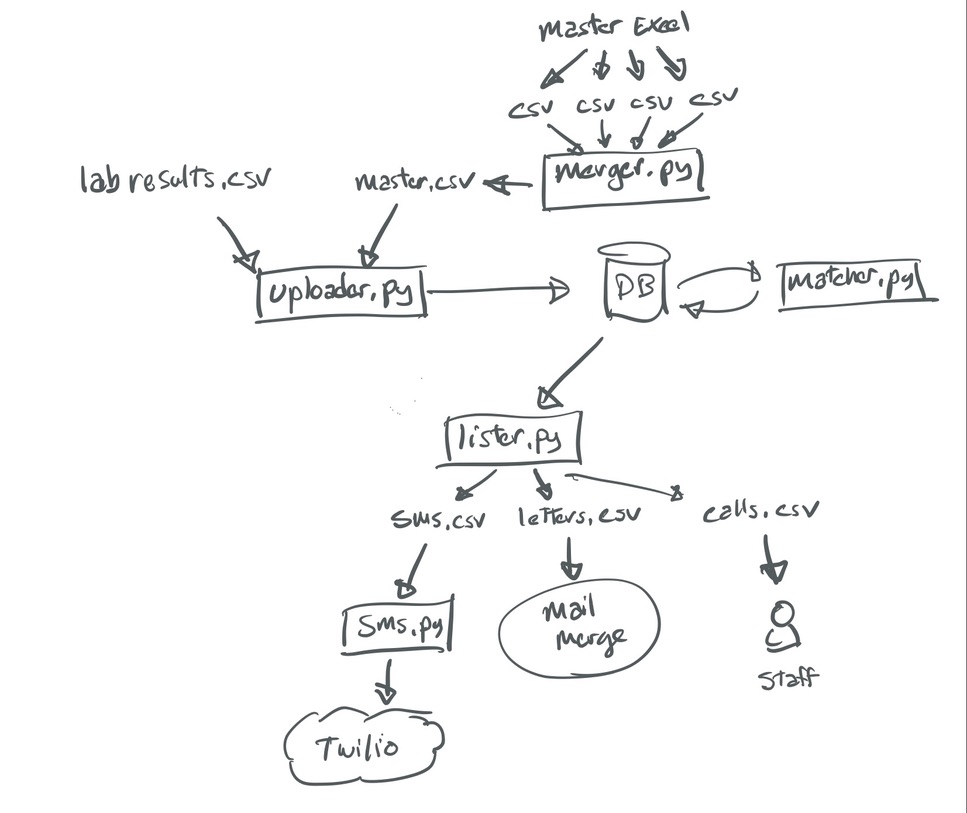 Master Excel
csv csv csv csv
merger.py
lab results.csv
master.csv
uploader.py
DB
matcher.py
lister.py
sms.csv
letters.csv
calls.csv
sms.py
mail
merge
staff
Twilio